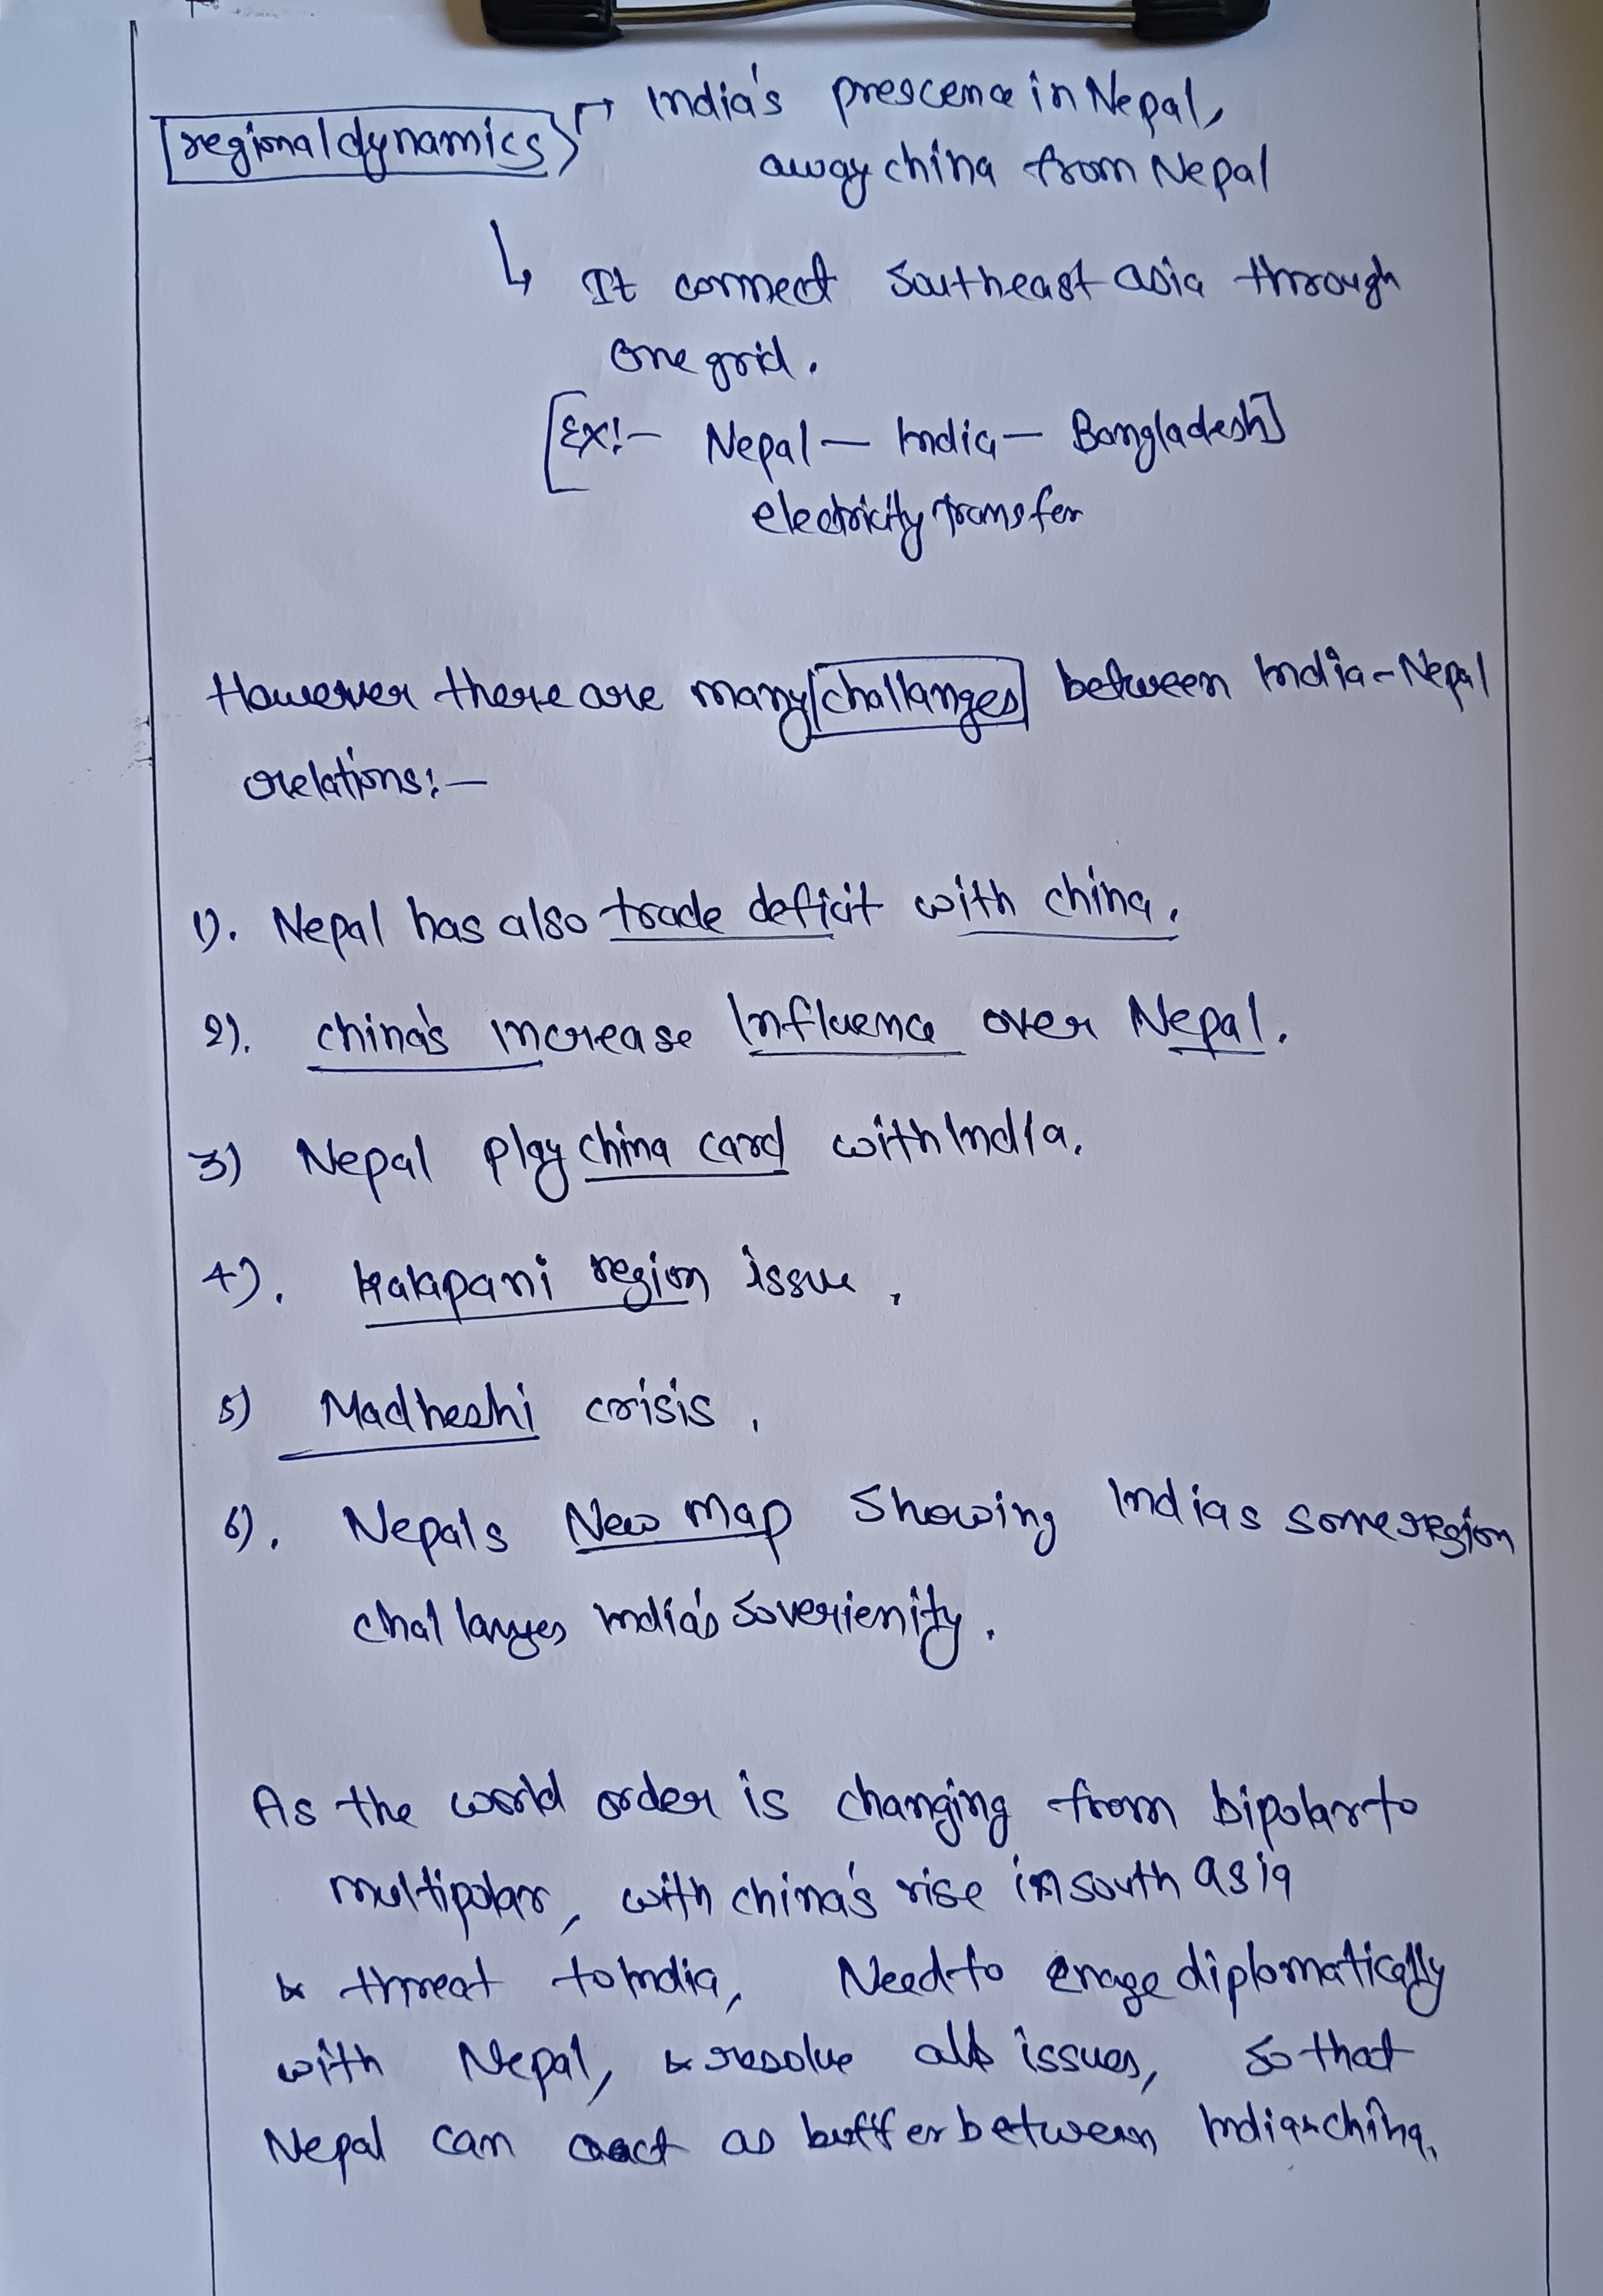 regional dynamics → India's prescence in Nepal,
away china from Nepal
↳ It connect Southeast asia through
one grid.
[Ex:- Nepal - India - Bangladesh]
electricity transfer
However there are many challanges between India-Nepal
relations:-
1). Nepal has also trade deficit with china.
2). china's increase Influence over Nepal.
3) Nepal play china card with India.
4). Kalapani region issue.
5) Madheshi crisis.
6). Nepals New Map Showing Indias some region
challanges India's soverienity.
As the world order is changing from bipolar to
multipolar, with china's rise in south asia
& threat to India, Need to enage diplomatically
with Nepal, & resolve all issues, so that
Nepal can act as buffer between India & china.